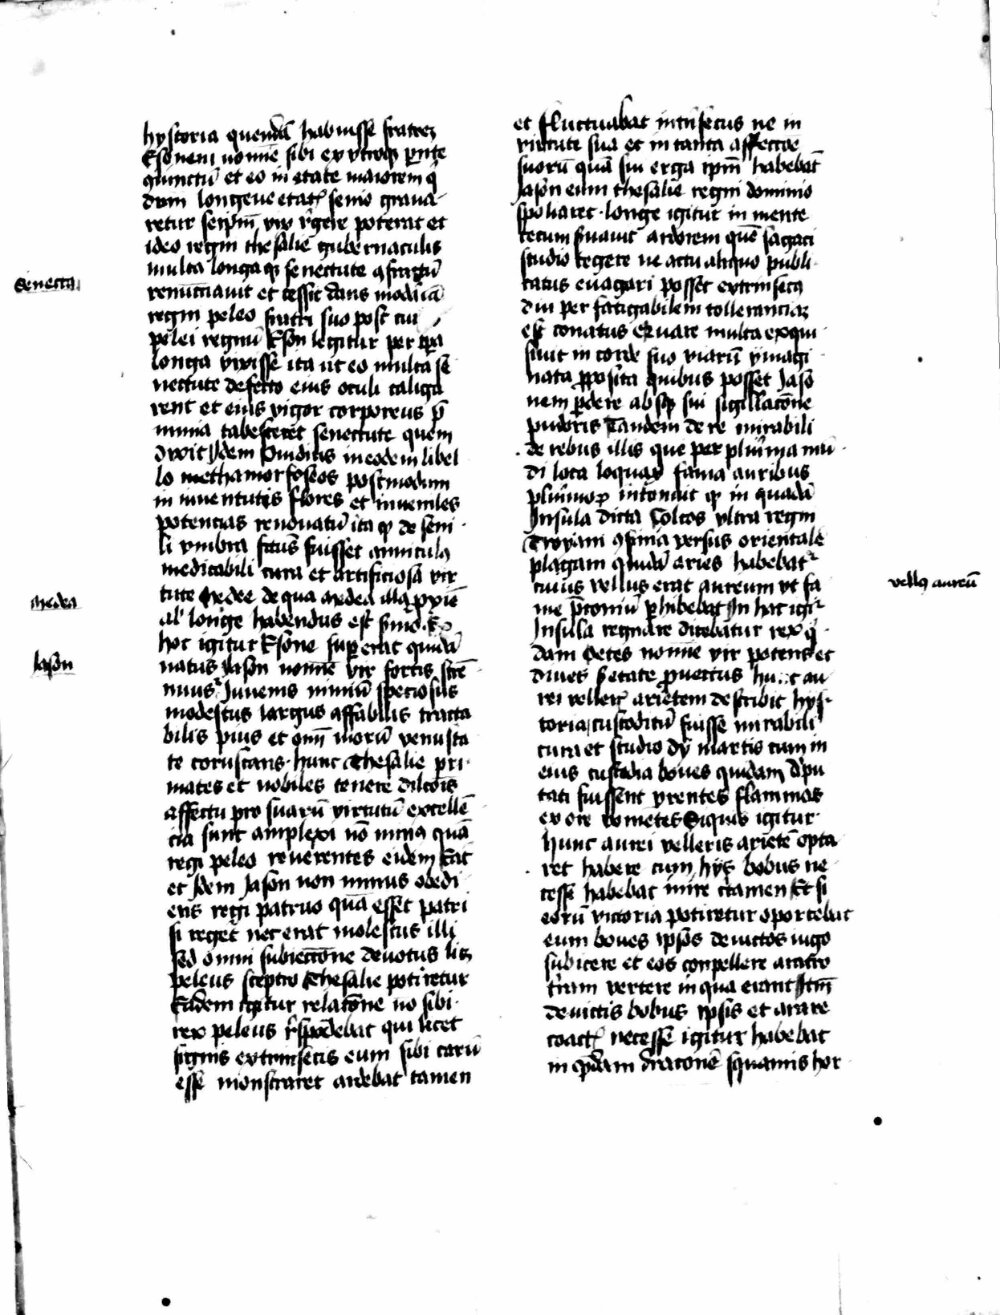 hystoria quendā habuisse fratrē
Esonem nomīe sibi ex utroqꝫ pnte
ꝯiunctū et eo in etate maiorem q
dum longeue etatꝭ senio grava
retur seipm̄ vix r̄gere poterat et
ideo regni thesalie gubernaculis
multa longaqꝫ senectute ꝯfractū
renunciavit et cessit dans modīa
regni peleo fratri suo post cui
pelei regnū Eson legitur per tpa
longa vixisse ita ut eo multa se
nectute defecto eius oculi caliga
rent et eius vigor corporeus p̄
nimia tabesceret senectute quem
dixit Idem Ovidius in eodem libel
lo methamorfoseos postmodum
in iuventutis flores et inveniles
potencias renovatū ita qꝫ de seni
li umbra fctūs fuisset annicula
medicabili cura et artificiosa vir
tute medee de qua medea illa pxiē
al' longe habendus est smo. Ex
hoc igitur Esone supererat quidā
natus Jason nomīe vir fortis stre
nuus Juvenis nimiū speciosus
modestus largus affabilis tracta
bilis pius et omī morū venusta
te coruscans. hunc Thesalie pri
mates et nobiles tenere dilcōis
affectu pro suarū virtutū excellē
cia sunt amplexi nō minꝯ quā
regi peleo reverentes eidem Erat
et Idem Jason non minus obedi
ens regi patruo quā esset patri
si reget nec erat molestus illi
sed omni subiectōne devotus lꝫ
peleus sceptro thesalie potiretur
Eadem igitur relatōne nō sibi
rex peleus r̄spōdebat qui licet
signis extrinsecis eum sibi carū
esse monstraret ardebat tamen
et fluctuabat intrisecus ne in
virtute sua et in tanta affectōe
suorū quā sui erga ipm̄ habebāt
Jason eum thesalie regni dominio
spoliaret. longe igitur in mente
tecum suavit ardorem quē sagaci
studio tegere ne actu aliquo publi
catus evagari posset extrinsecꝯ
diu per fatigabilem tollerancia
est conatus eq̄vare multa exqui
sivit in corde suo viarū ymagi
nata pposita quibus posset Jaso
nem pdere absqꝫ sui sigillatōne
pudoris Tandem de re mirabili
de rebus illis que per plurīma mū
di loca loquax fama auribus
plurīmorꝫ intonuit qꝫ in quadā
Insula dicta Colcos ultra regni
Troyani ꝯfinia versus orientalē
plagam quidā aries habebatᷣ
cuius vellus erat aureum ut fa
me p̄coniū phibebat In hac igiᷣ
Insula regnare dicebatur rex q̄
dam Oetes nomīe vir potens et
dives s̄ etate provectus hunc au
rei vellerꝭ arietem describit hys
toria custoditū fuisse mirabili
cura et studio dij martis cum in
eius custodia boves quidam dpu
tati fuissent urentes flammas
ex ore vometes Siquis igitur
hunc aurei velleris arietē opta
ret habere cum hys bobus ne
cesse habebat inire ctamen Et si
eorū victoria potiretur oportebat
eum boves ipsos devictos iugo
subicere et eos conpellere aratro
trīam vertere in qua erant Itm̄
devictis bobus ipsis et arare
coactꝭ necesse igitur habebat
in qdam draconē squamis hor
Senecta
medea
Jason
vellꝯ aureū